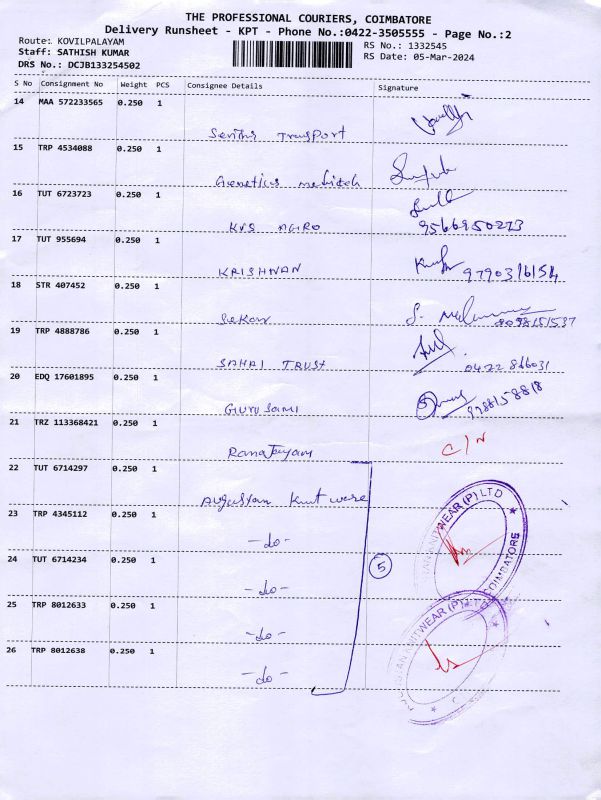 THE PROFESSIONAL COURIERS, COIMBATORE
Delivery Runsheet - KPT - Phone No.:0422-3505555 - Page No.:2
Route: KOVILPALAYAM
RS No.: 1332545
Staff: SATHISH KUMAR
RS Date: 05-Mar-2024
DRS No.: DCJB133254502
S No Consignment No Weight PCS Consignee Details Signature
14 MAA 572233565 0.250 1
Transport
15 TRP 4534088 0.250 1
Genetics
16 TUT 6723723 0.250 1
KVS AGRO 9566950273
17 TUT 955694 0.250 1
KRISHNAN 9790316154
18 STR 407452 0.250 1
Sekar
19 TRP 4888786 0.250 1
SAHAI TRUST
20 EDQ 17601895 0.250 1
GURUSAMI 9788158818
21 TRZ 113368421 0.250 1
C/N
22 TUT 6714297 0.250 1
Augustan Knit were
23 TRP 4345112 0.250 1
-do-
24 TUT 6714234 0.250 1
-do-
5
25 TRP 8012633 0.250 1
-do-
26 TRP 8012638 0.250 1
-do-
KNITWEAR (P) LTD
COIMBATORE
KNITWEAR (P)